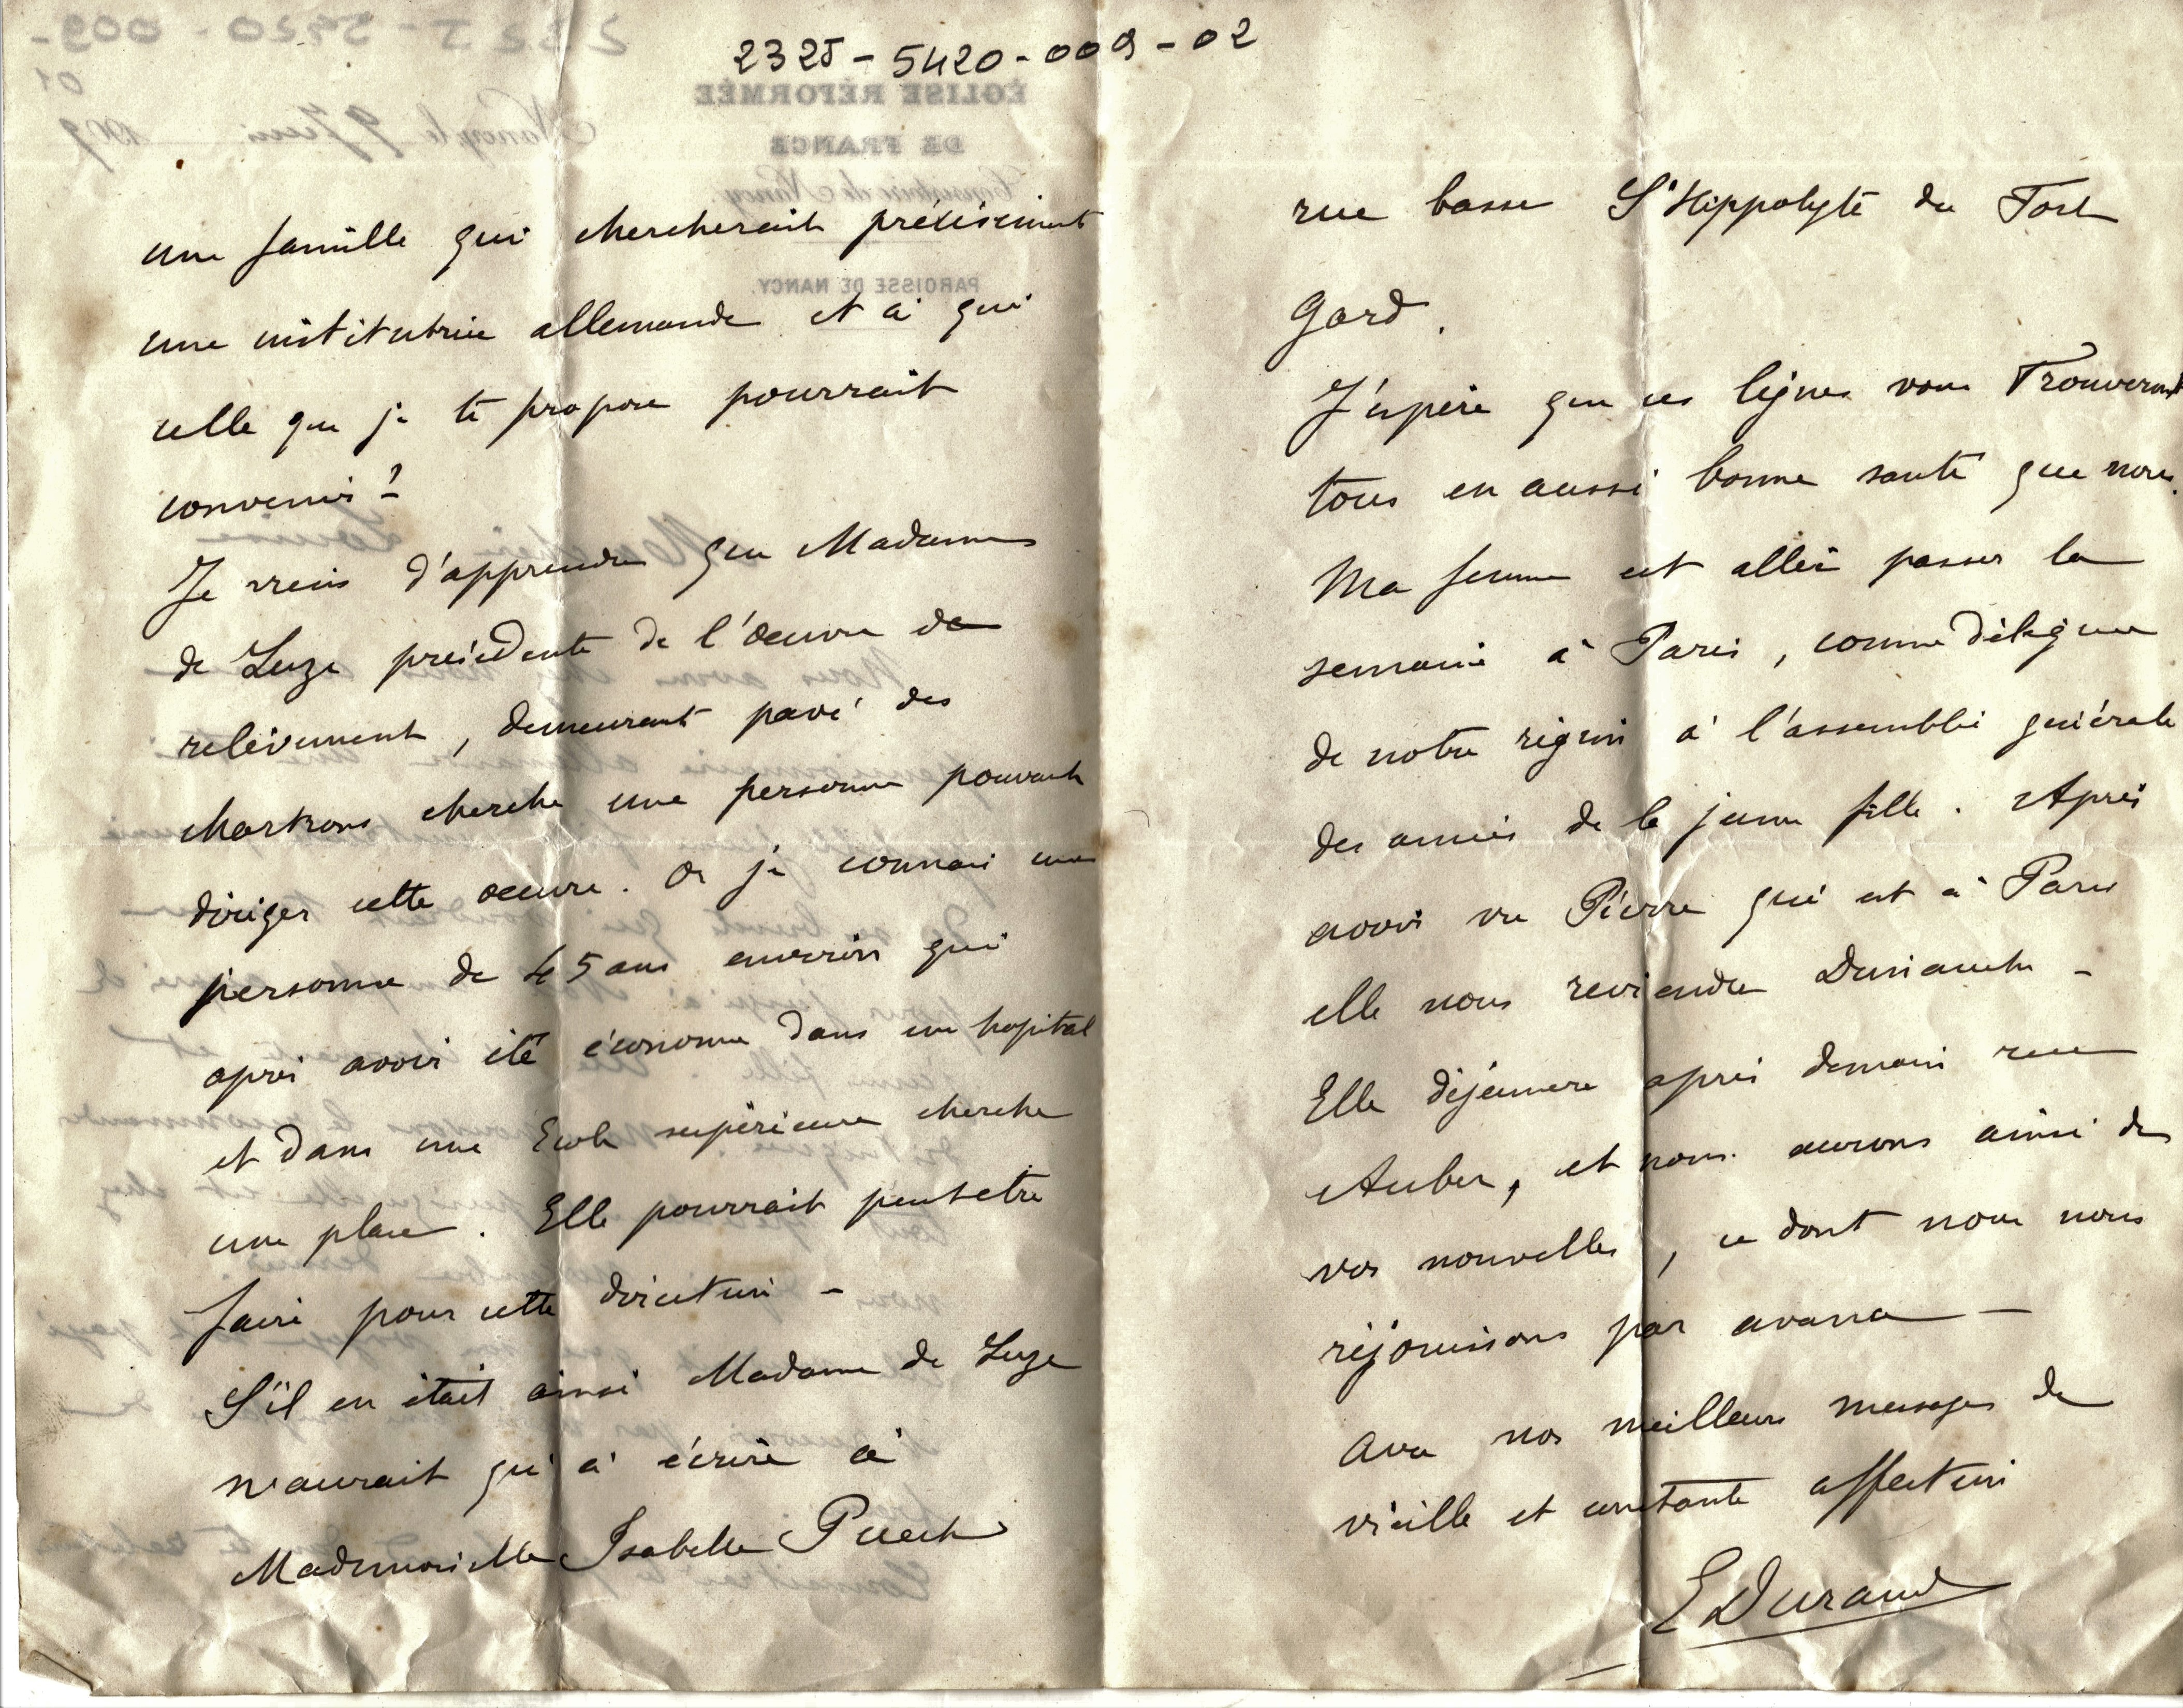 232J - 5420 - 009 - 02
une famille qui chercherait précisément
une institutrice allemande et à qui
celle que je te propose pourrait
convenir ?
Je viens d'apprendre que Madame
de Luze présidente de l'œuvre de
relèvement, demeurant pavé des
chartrons cherche une personne pouvant
diriger cette œuvre. Or je connais une
personne de 45 ans environ qui
après avoir été économe dans un hopital
et dans une Ecole supérieure cherche
une place. Elle pourrait peut etre
faire pour cette direction -
S'il en était ainsi Madame de Luze
n'aurait qu'à écrire à
Mademoiselle Isabelle Puech
rue basse St Hippolyte du Fort
Gard.
J'espère que ces lignes vous trouveront
tous en aussi bonne santé que nous.
Ma femme est allée passer la
semaine à Paris, comme déléguée
de notre région à l'assemblée générale
des amies de la jeune fille. Après
avoir vu Pierre qui est à Paris
elle nous reviendra Dimanche -
Elle déjeunera après demain rue
Auber, et nous aurons ainsi de
vos nouvelles, ce dont nous nous
réjouissons par avance —
Avec nos meilleurs messages de
vieille et constante affection
E Durand
ÉGLISE RÉFORMÉE
DE FRANCE
Consistoire de Nancy
PAROISSE DE NANCY.
Nancy, le 9 Juin